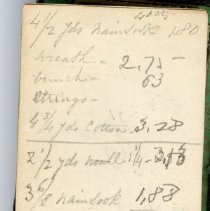 40cts
4 1/2 yds Nainsook 1,80
Wreath - 2,75
63
Strings -
4 3/4 yds Cotton 3,28
2 1/2 yds 1/4 -
3 6/8 Nainsook 1,88